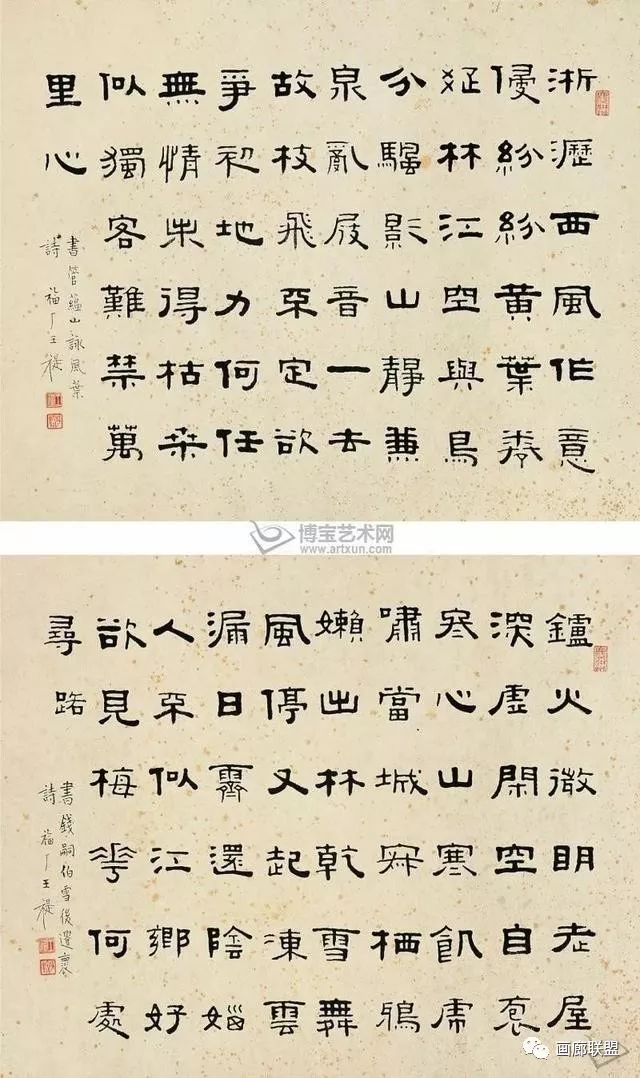 淅瀝西風作意
侵紛紛黃葉
疏林江空與鳥
分驅影山靜兼
泉亂屐音一去
故枝飛不定欲
爭初地力何任
無情未得枯桑
似獨客難禁萬
里心
書管蘊山詠風葉
詩 福厂王禔
博宝艺术网
www.artxun.com
鑪火微明老屋
深虛閑空自袌
冬心山寒飢虎
嘯當城寂栖鴉
嬾出林乾雪舞
風停又起凍雲
漏日霽還陰
人不似江鄉好
欲見梅花何處
尋踏
書錢嗣伯雪後遣褱
詩 福厂王禔
画廊联盟